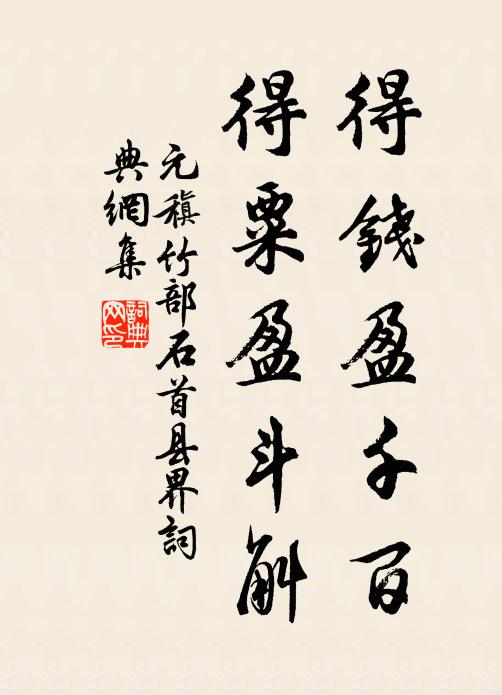 得錢盈千百
得粟盈斗斛
元稹竹部石首县界詞
典網集
詞典
网印